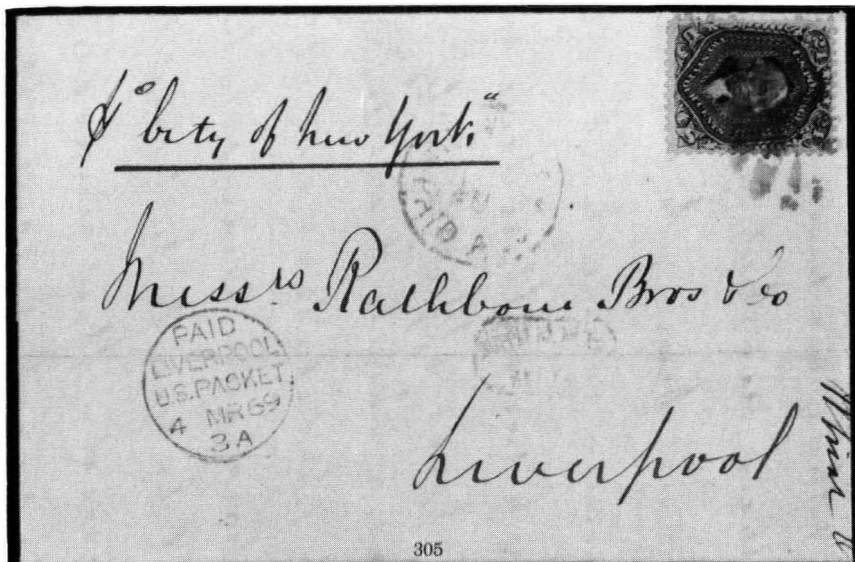 "City of New York"
Messrs Rathbone Bros & Co
PAID
LIVERPOOL
U.S.PACKET
4 MR69
3A
PAID
Liverpool
305